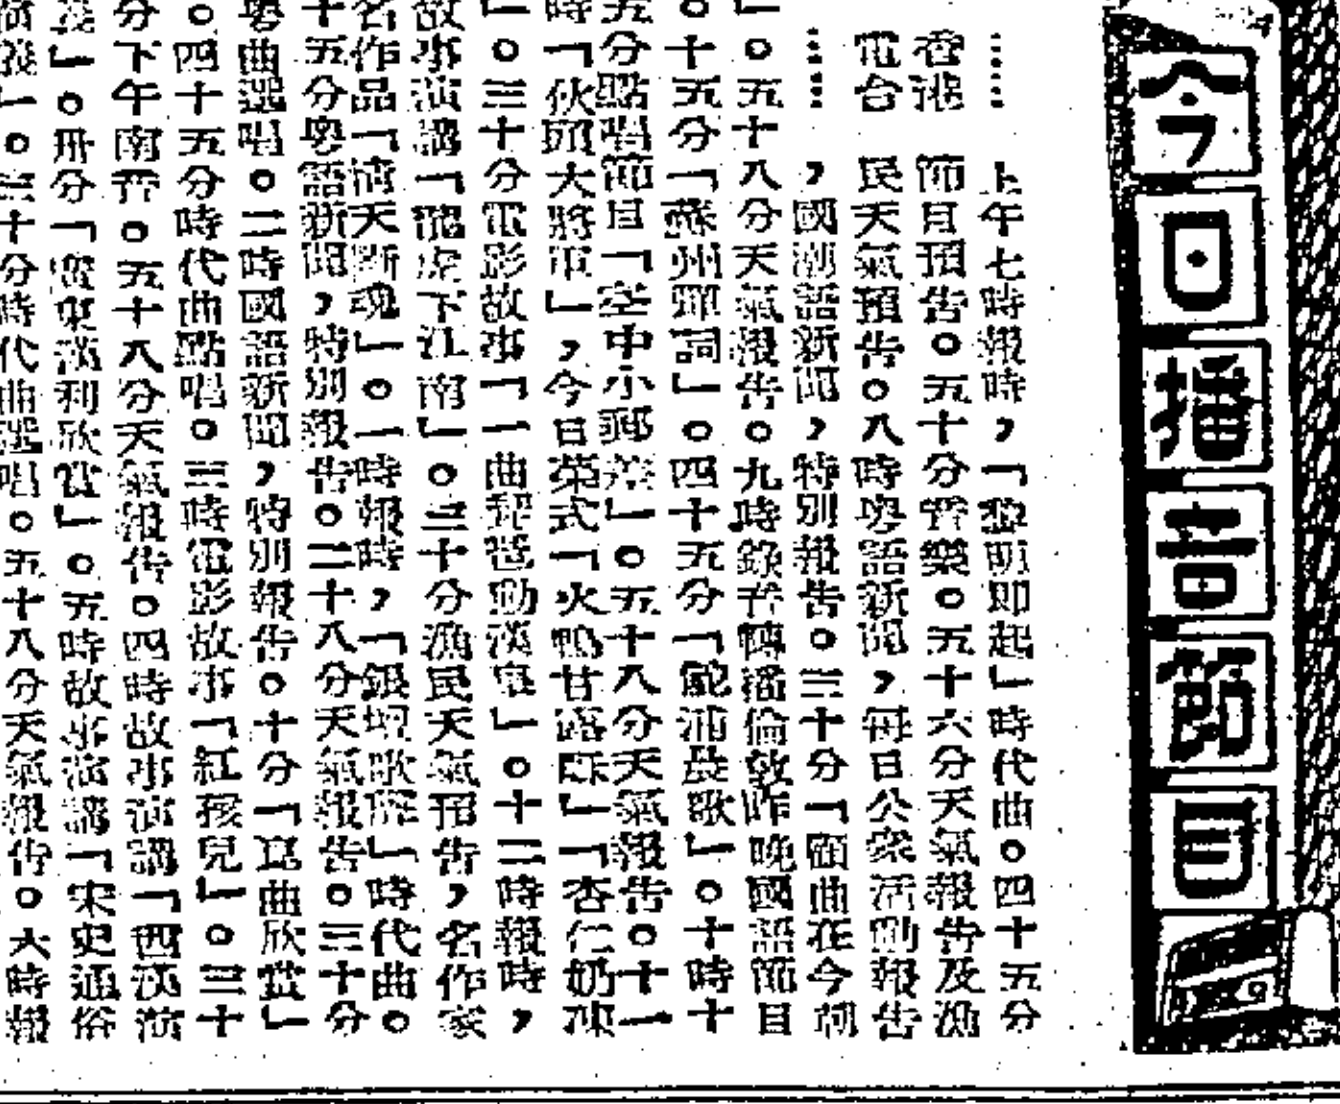 今日播音節目
香港
電台
上午七時報時，「黎明即起」時代曲。四十五分
節目預告。五十分音樂。五十六分天氣報告及漁
民天氣預告。八時粵語新聞，每日公衆活動報告
，國潮語新聞，特別報告。三十分「顧曲在今朝
」。五十八分天氣報告。九時錄音轉播倫敦昨晚國語節目
。十五分「蘇州彈詞」。四十五分「 浦晨歌」。十時十
五分點唱節目「空中小郵差」。五十八分天氣報告。十一
時「伙頭大將軍」，今日菜式「火鴨甘露 」「杏仁奶凍
」。三十分電影故事「一曲琵琶動漢皇」。十二時報時，
故事演講「龍虎下江南」。三十分漁民天氣預告，名作家
名作品「情天斷魂」。一時報時，「銀壇歌 」時代曲。
十五分粵語新聞，特別報告。二十八分天氣報告。三十分
粵曲選唱。二時國語新聞，特別報告。十分「崑曲欣賞」
。四十五分時代曲點唱。三時電影故事「紅孩兒」。三十
分下午南音。五十八分天氣報告。四時故事演講「西漢演
義」。卅分「廣東漢利欣賞」。五時故事演講「宋史通俗
演義」。三十分時代曲選唱。五十八分天氣報告。六時報